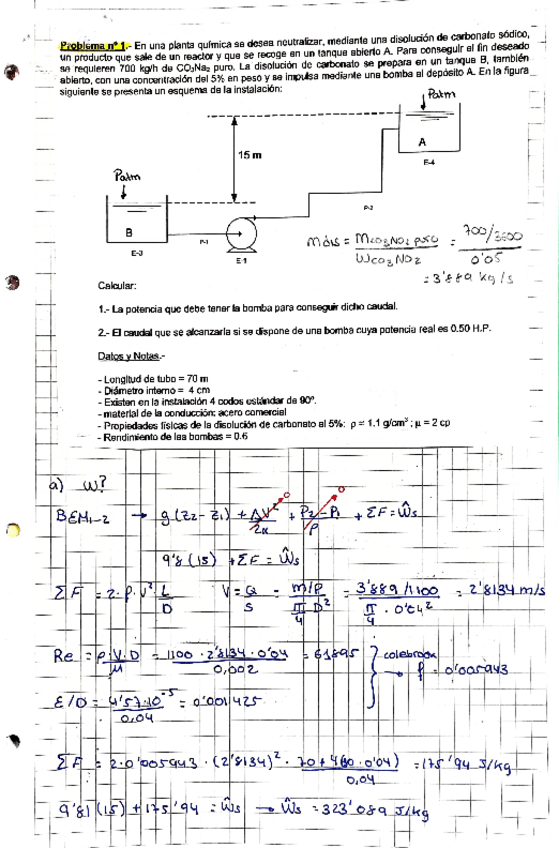 Problema nº 1.- En una planta química se desea neutralizar, mediante una disolución de carbonato sódico,
un producto que sale de un reactor y que se recoge en un tanque abierto A. Para conseguir el fin deseado
se requieren 700 kg/h de CO₃Na₂ puro. La disolución de carbonato se prepara en un tanque B, también
abierto, con una concentración del 5% en peso y se impulsa mediante una bomba al depósito A. En la figura
siguiente se presenta un esquema de la instalación:
Patm
A
E-4
15 m
Patm
B
E-3
P-1
E-1
P-2
mdis = mco₃NO₂ puro / Wco₃NO₂ = 700/3600 / 0'05
= 3'889 kg/s
Calcular:
1.- La potencia que debe tener la bomba para conseguir dicho caudal.
2.- El caudal que se alcanzaría si se dispone de una bomba cuya potencia real es 0.50 H.P.
Datos y Notas.-
- Longitud de tubo = 70 m
- Diámetro interno = 4 cm
- Existen en la instalación 4 codos estándar de 90º.
- material de la conducción: acero comercial
- Propiedades físicas de la disolución de carbonato al 5%: ρ = 1.1 g/cm³ ; μ = 2 cp
- Rendimiento de las bombas = 0.6
a) W?
BEM1-2 → g(z₂ - z₁) + ΔV²/2α + P₂-P₁/ρ + ΣF = Ŵs
0 0
9'8 (15) + ΣF = Ŵs
ΣF = 2·f·V²·L/D V = Q/S = m/ρ / π/4 D² = 3'889/1100 / π/4 · 0'04² = 2'8134 m/s
Re = ρ·V·D/μ = 1100·2'8134·0'04 / 0,002 = 61895
colebrook → f = 0'005943
ε/D = 4'57·10⁻⁵ / 0,04 = 0'001425
ΣF = 2·0'005943 · (2'8134)² · 70+4(30·0'04) / 0,04 = 175'94 J/kg
9'81 (15) + 175'94 = Ŵs → Ŵs = 323'089 J/kg